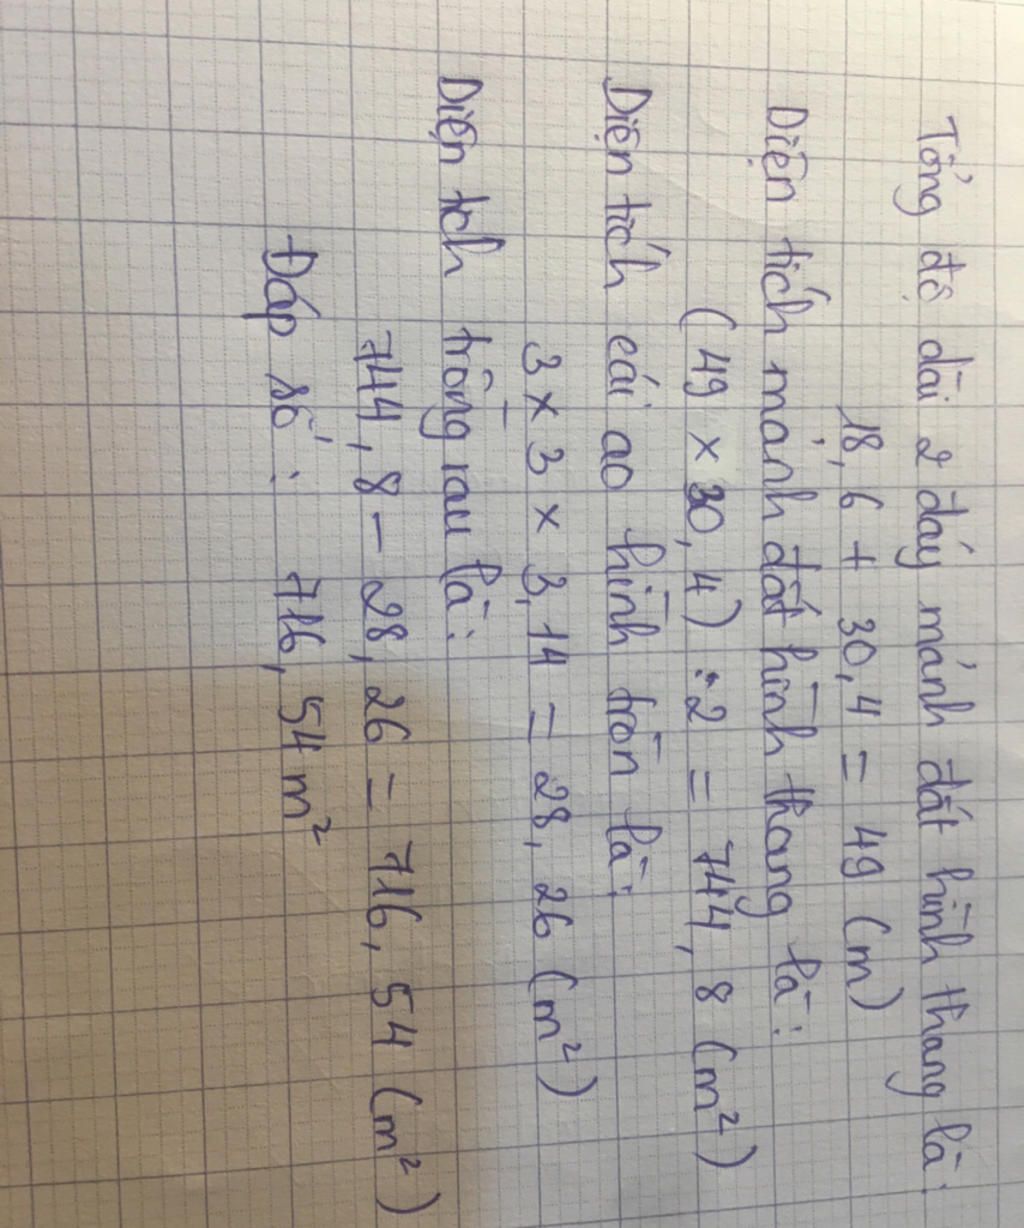 Tổng độ dài 2 đáy mảnh đất hình thang là:
18,6 + 30,4 = 49 (m)
Diện tích mảnh đất hình thang là:
(49 x 30,4) : 2 = 744,8 (m²)
Diện tích cái ao hình tròn là:
3 x 3 x 3,14 = 28,26 (m²)
Diện tch trồng rau là:
744,8 - 28,26 = 716,54 (m²)
Đáp số : 716,54 m²